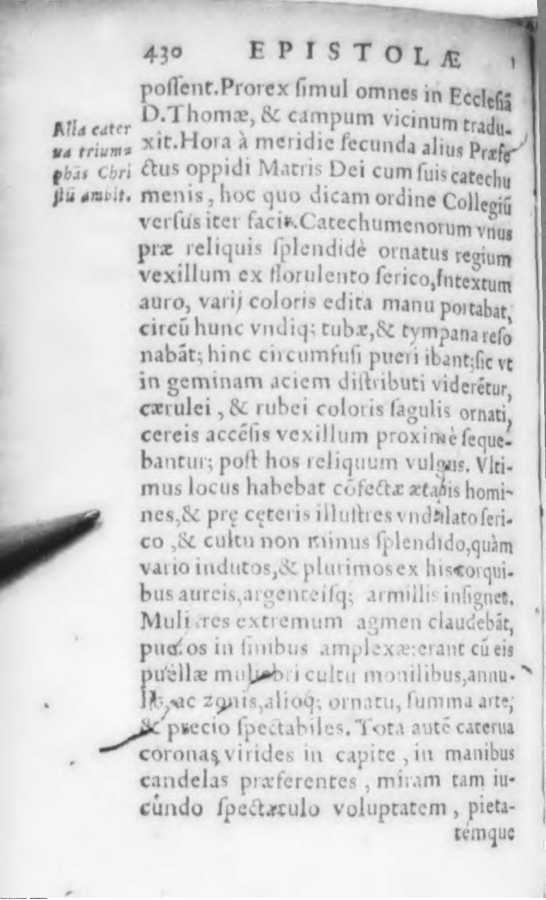 430 EPISTOLÆ
possent. Prorex simul omnes in Ecclesiã
D. Thomæ, & campum vicinum tradu-
xit. Hora à meridie secunda alius Præfe
ctus oppidi Matris Dei cum suis catechu
menis, hoc quo dicam ordine Collegiũ
versus iter facit. Catechumenorum vnus
præ reliquis splendidè ornatus regium
vexillum ex florulento serico, intextum
auro, varij coloris edita manu portabat,
circũ hunc vndiq; tubæ, & tympana reso
nabãt; hinc circumfusi pueri ibant; sic vt
in geminam aciem distributi viderẽtur,
cærulei, & rubei coloris sagulis ornati,
cereis accẽsis vexillum proximè seque-
bantur; post hos reliquum vulgus. Vlti-
mus locus habebat cõfectæ ætatis homi-
nes, & pręcęteris illustres vndulato seri-
co, & cultu non minus splendido, quàm
vario indutos, & plurimos ex his torqui-
bus aureis, argenteisq; armillis insignes.
Mulieres extremum agmen claudebãt,
pueros in sinibus amplexæ: erant cũ eis
puellæ muliebri cultu monilibus, annu-
lis, ac zonis, alioq; ornatu, summa arte,
& precio spectabiles. Tota autẽ caterua
coronas virides in capite, in manibus
candelas præferentes, miram tam iu-
cundo spectaculo voluptatem, pieta-
témque
Alia cater
ua trium=
phãs Chri
stũ ambit.